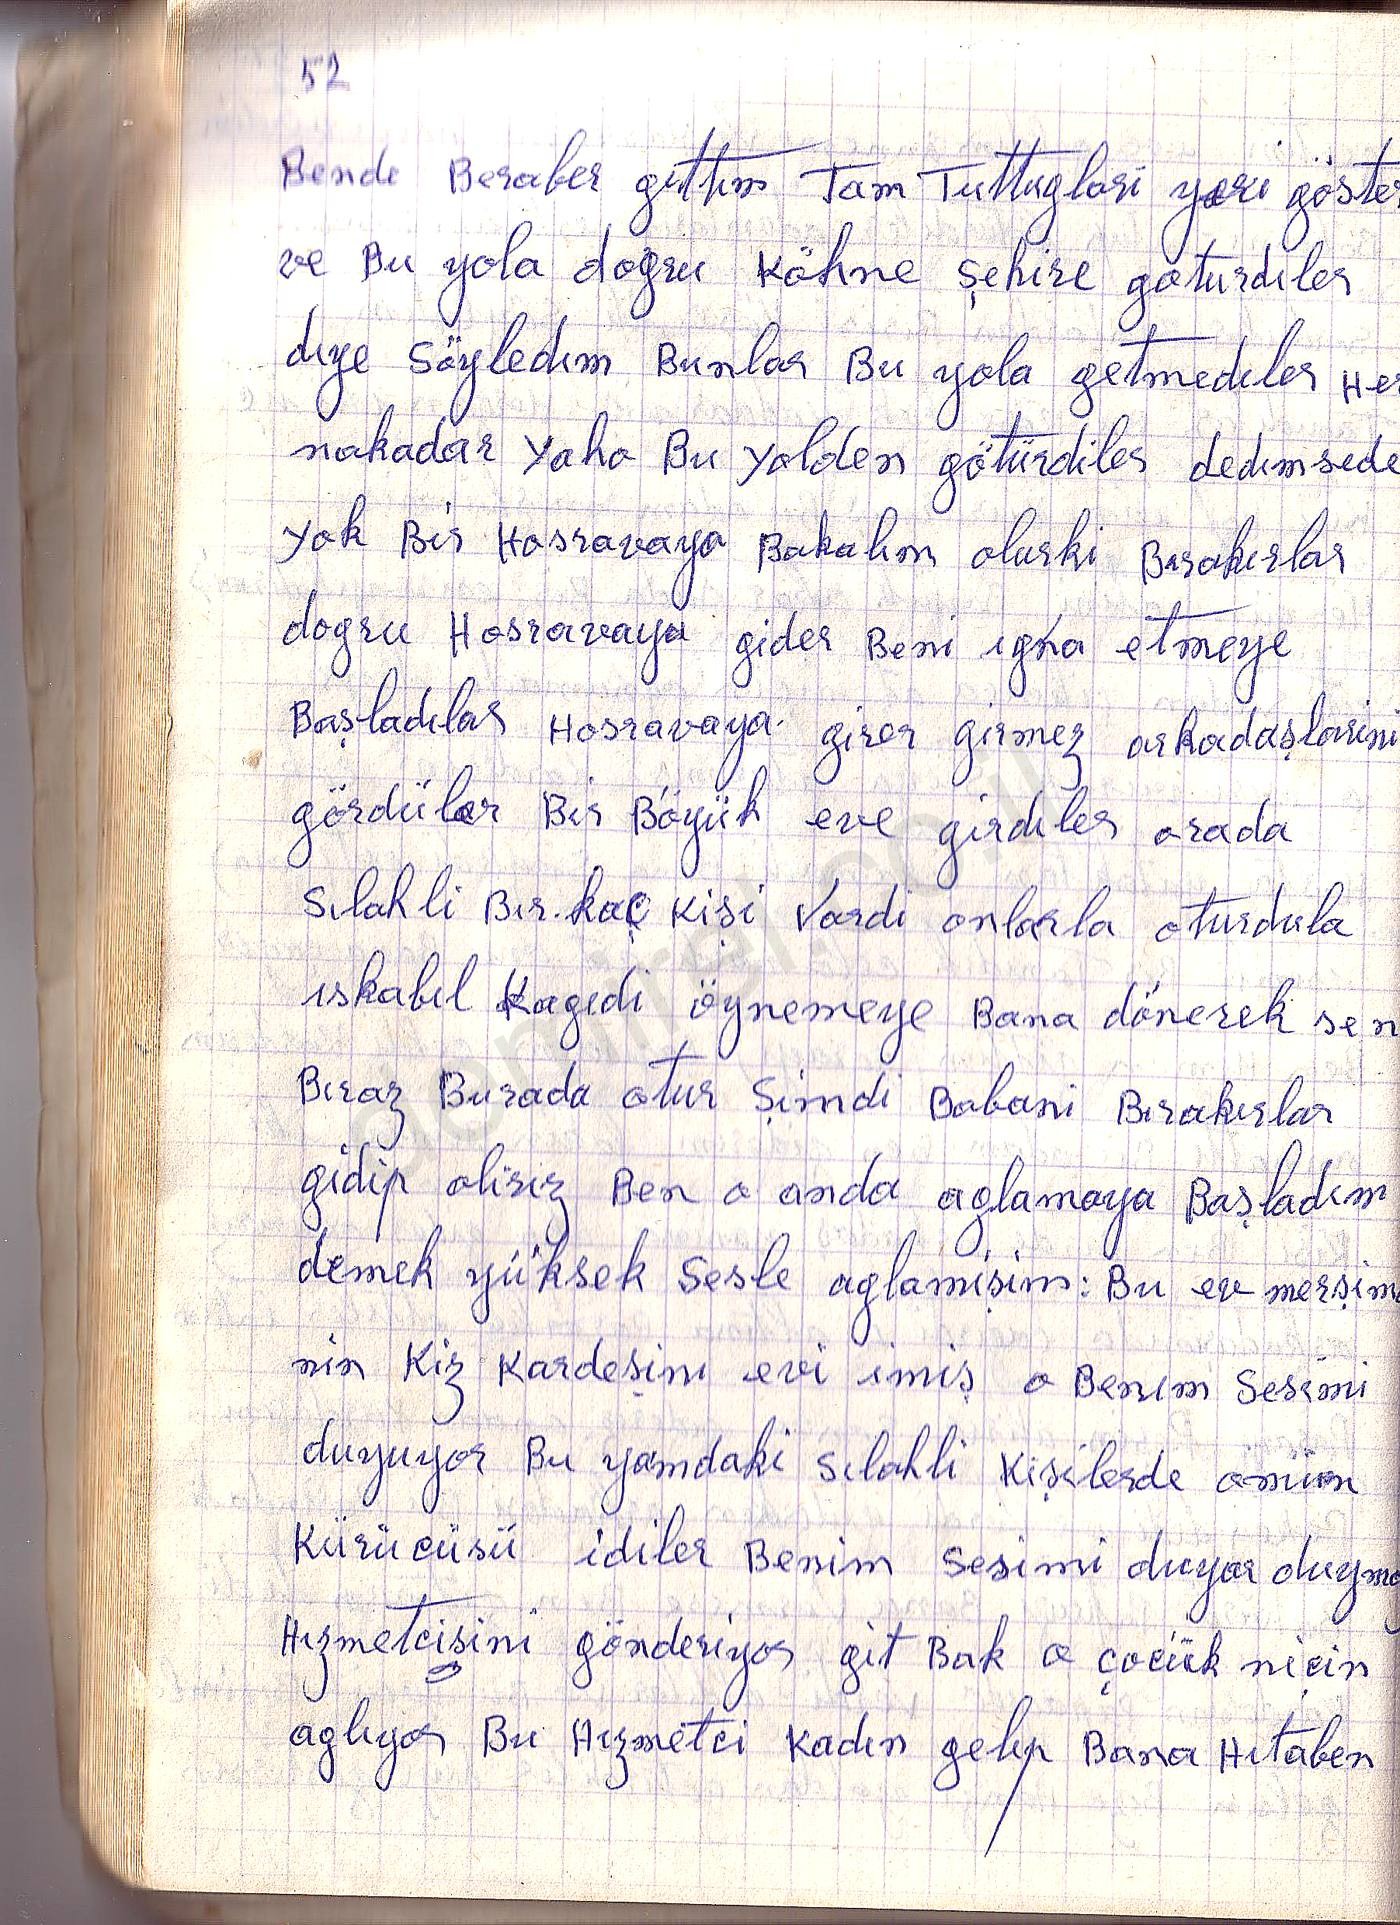 52
Bende Beraber gittim Tam Tuttuglari yeri göster
ve Bu yola dogru Köhne şehire goturdıler
dıye Söyledım Bunlar Bu yola getmedıler Her
nakadar Yaho Bu Yolden götürdiler dedımsede
Yok Bir Hosravaya Bakalım olurki Bırakırlar
dogru Hosravaya gider Beni ıgna etmeye
Başladılar Hosravaya girer girmez arkadaşlarini
gördüler Bir Böyük eve girdıler orada
Sılahli Bır.kaç Kişi Vardi onlarla oturdula
ıskabıl Kagıdi öynemeye Bana dönerek sen
Bıraz Burada otur Şimdi Babani Bırakırlar
gidip aliriz Ben o anda aglamaya Başladım
demek yüksek Sesle aglamişim: Bu ev merşim
nin Kiz Kardeşinı evi imiş o Benım Sesimi
duyuyor Bu yamdaki Sılahli Kişilerde onün
Kürücüsü idiler Benim Sesimi duyar duyma
Hızmetcisini gönderiyor git Bak o çocük niçin
aglıyor Bu Hızmetci Kadın gelıp Bana Hıtaben
demirel.co.il